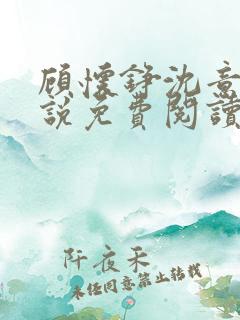 顾懷錚沈意
說免費閱讀
阡夜禾
未经同意禁止转载